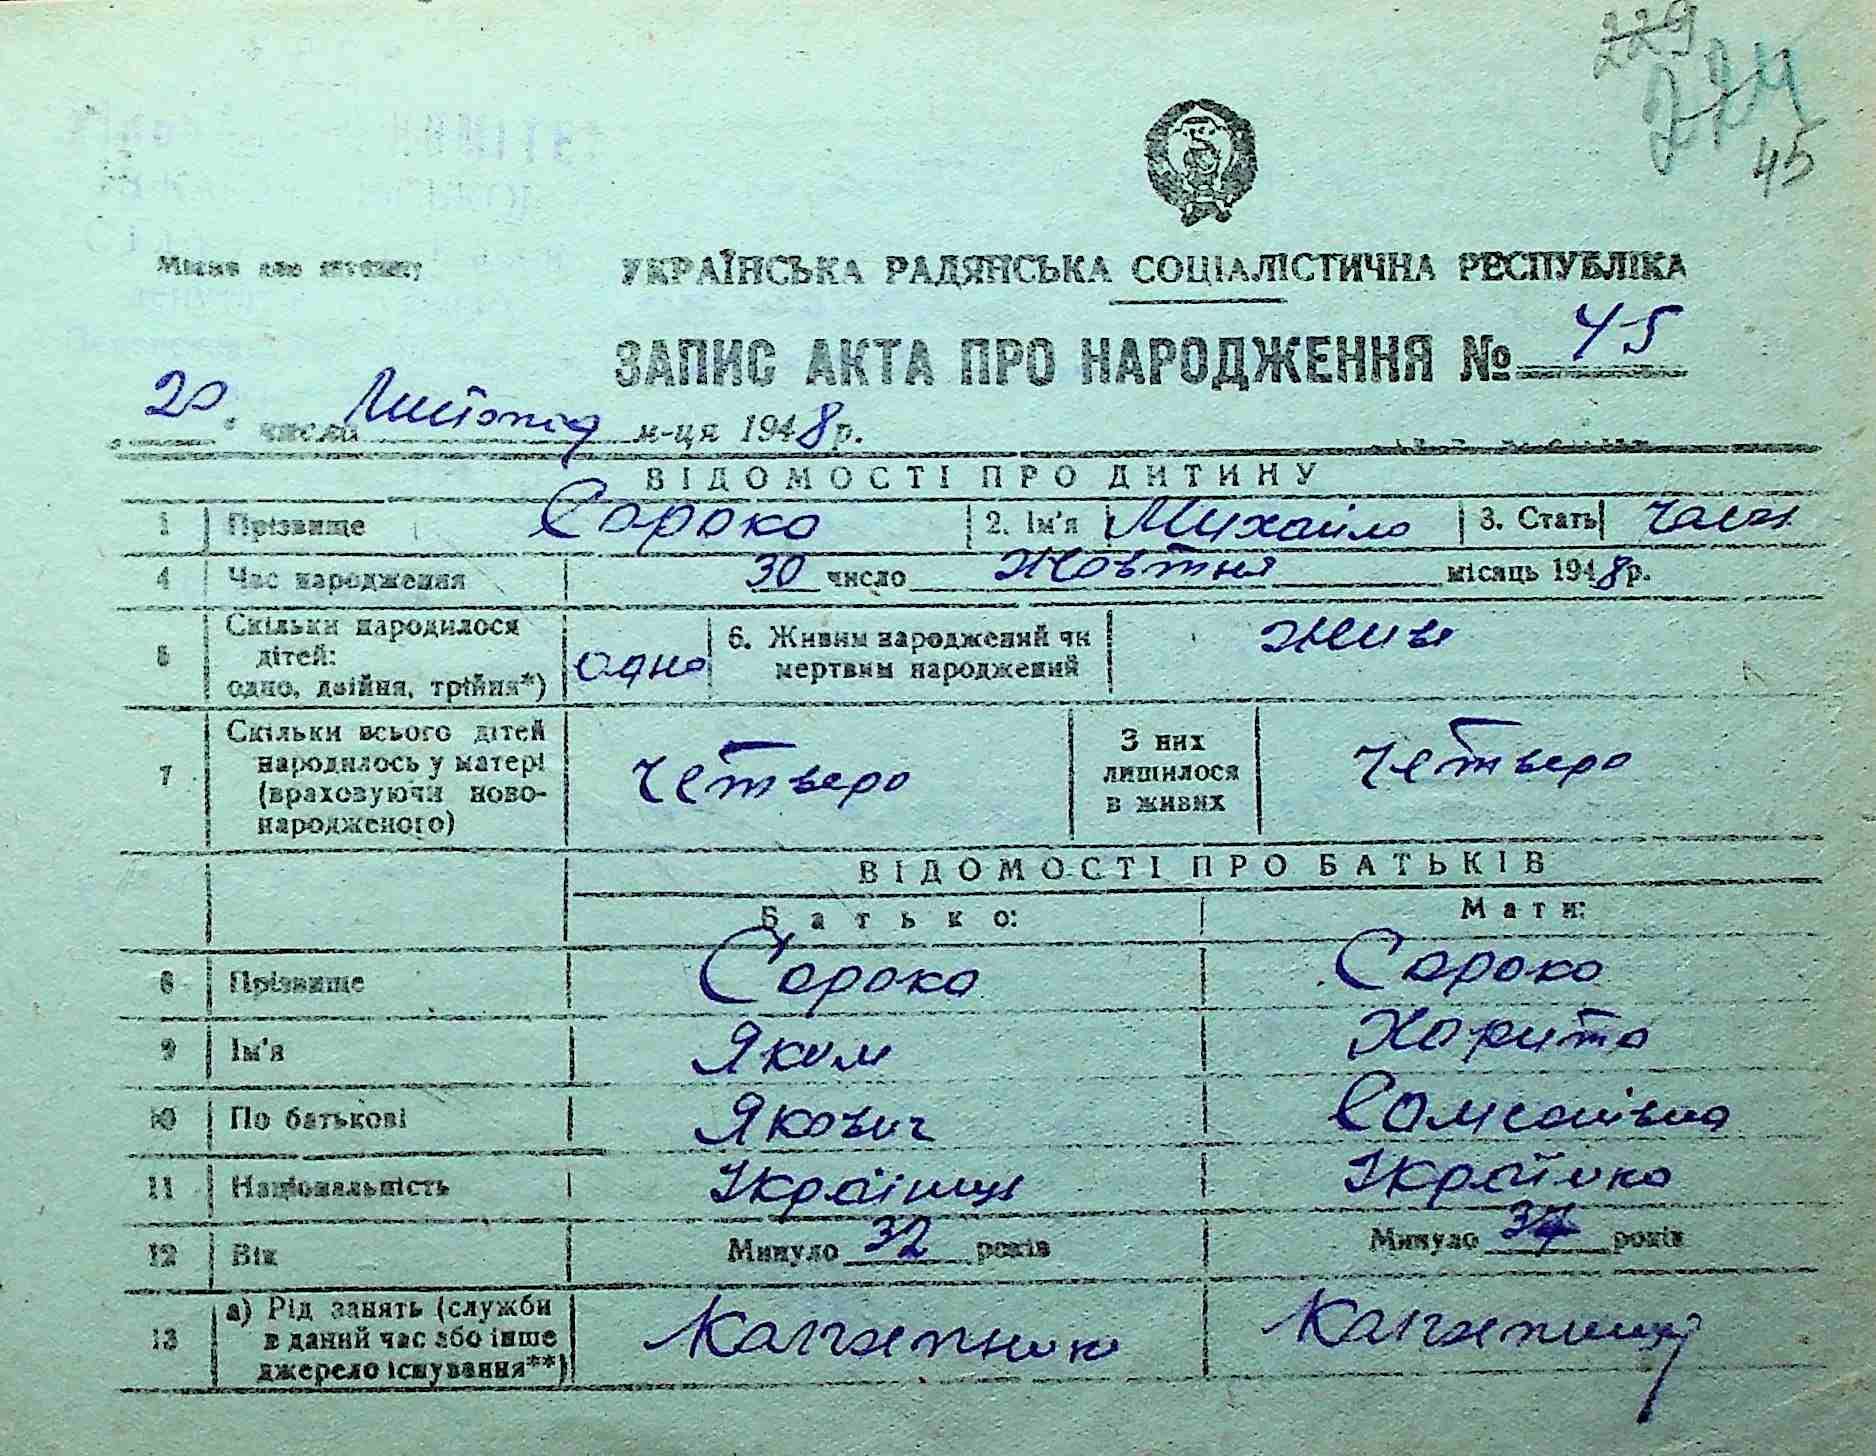 229
224
45
Місце для штампу
УКРАЇНСЬКА РАДЯНСЬКА СОЦІАЛІСТИЧНА РЕСПУБЛІКА
ЗАПИС АКТА ПРО НАРОДЖЕННЯ № 45
"20" число Листопад м-ця 1948 р.
ВІДОМОСТІ ПРО ДИТИНУ
1 Прізвище Сорока 2. Ім'я Михайло 3. Стать
4 Час народження 30 число жовтня місяць 1948 р.
5 Скільки народилося дітей: одно, двійня, трійня*) одно 6. Живим народжений чи мертвим народжений живе
7 Скільки всього дітей народилось у матері (враховуючи новонародженого) четверо З них лишилося в живих четверо
ВІДОМОСТІ ПРО БАТЬКІВ
Батько: Мати:
8 Прізвище Сорока Сорока
9 Ім'я Яким Харита
10 По батькові Якович Самсонівна
11 Національність Українець Українка
12 Вік Минуло 32 років Минуло років
13 а) Рід занять (служби в даний час або інше джерело існування**) Колгоспник Колгоспниця